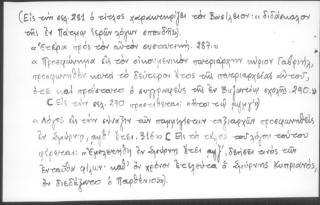 (Εἰς τὴν σελ. 281 ὁ τίτλος χαρακτηρίζει τὸν Βασίλειον: «διδάσκαλον
τῆς ἐν Πάτμῳ ἱερῶν λόγων σπουδῆς).
« Ἑτέρα πρὸς τὸν αὐτὸν συστατική. 287.»
« Προσφώνημα εἰς τὸν οἰκουμενικὸν πατριάρχην κύριον Γαβριήλ,
προσφωνηθὲν κατὰ τὸ δεύτερον ἔτος τῆς πατριαρχείας αὐτοῦ,
ὅτε καὶ προΐστατο ὁ συγγραφεὺς τῆς ἐν Βυζαντίῳ σχολῆς. 290.»
( Εἰς τὴν σελ. 290 προστίθεται:
« Λόγος εἰς τὴν σύναξιν τῶν παμμεγίστων ταξιαρχῶν προσφωνηθεὶς
ἐν Σμύρνῃ, ἔτει. 316.» ( Εἰς τὸ τέλος τοῦ λόγου τούτου
φέρεται: « ἐν Σμύρνῃ ἔτει δεήσει ἑνὸς τῶν
ἐνταῦθα φίλων· καθ' ὃν χρόνον ἐτελεύτα ὁ Σμύρνης Κυπριανός,
ὃν διεδέξατο ὁ Παρθένιος»).